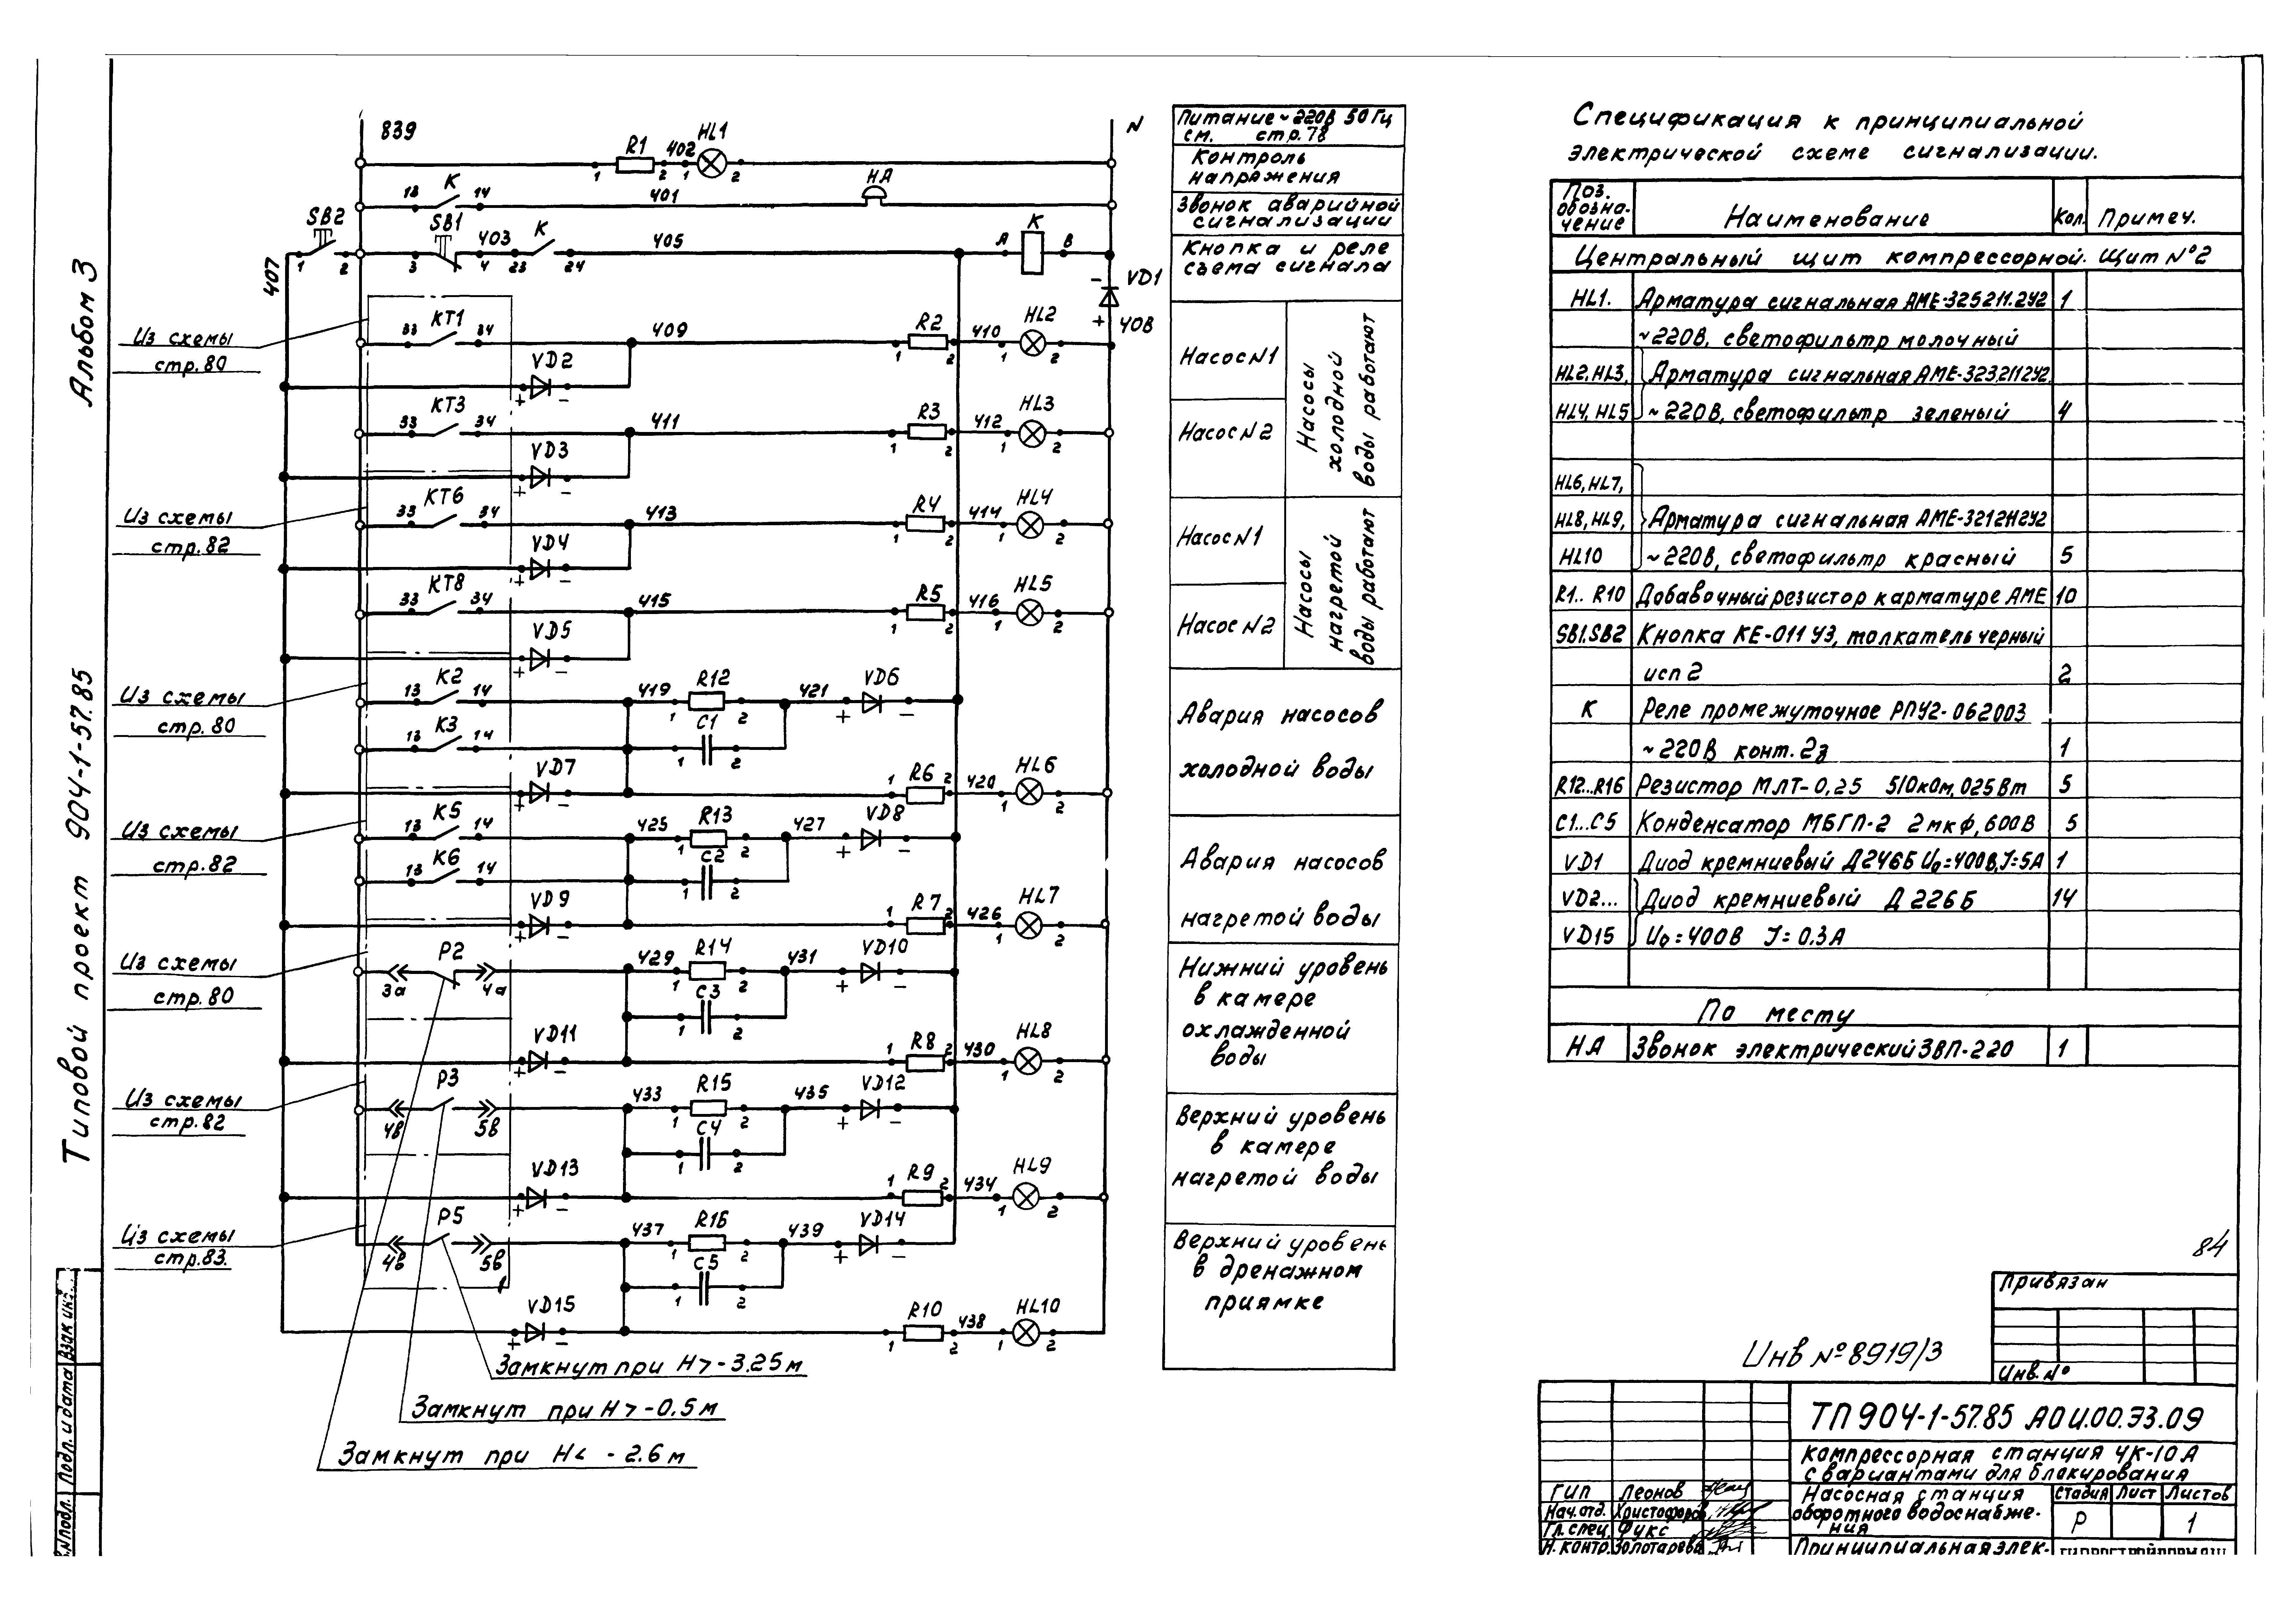 Альбом 3
Типовой проект 904-1-57.85
839
R1 402 HL1
1 2 1 2
N
13 K 14 401 HA
SB2 SB1 403 K 405 K
1 2 3 4 23 24 A B
407
VD1
408
Из схемы
стр. 80
33 KT1 34 409 R2 410 HL2
1 2 1 2
VD2
+ -
33 KT3 34 411 R3 412 HL3
1 2 1 2
VD3
+ -
Из схемы
стр. 82
33 KT6 34 413 R4 414 HL4
1 2 1 2
VD4
+ -
33 KT8 34 415 R5 416 HL5
1 2 1 2
VD5
+ -
Из схемы
стр. 80
13 K2 14 419 R12 421 VD6
1 2 + -
13 K3 14 C1
1 2
VD7 R6 420 HL6
+ - 1 2 1 2
Из схемы
стр. 82
13 K5 14 425 R13 427 VD8
1 2 + -
13 K6 14 C2
1 2
VD9 R7 426 HL7
+ - 1 2 1 2
Из схемы
стр. 80
3а P2 4а 429 R14 431 VD10
1 2 + -
C3
1 2
VD11 R8 430 HL8
+ - 1 2 1 2
Из схемы
стр. 82
4в P3 5в 433 R15 435 VD12
1 2 + -
C4
1 2
VD13 R9 434 HL9
+ - 1 2 1 2
Из схемы
стр. 83.
4в P5 5в 437 R16 439 VD14
1 2 + -
C5
1 2
VD15 R10 438 HL10
+ - 1 2 1 2
Замкнут при H > -3.25 м
Замкнут при H > -0.5 м
Замкнут при H < - 2.6 м
Питание ~ 220в 50 Гц
см. стр. 78
Контроль
напряжения
Звонок аварийной
сигнализации
Кнопка и реле
съема сигнала
Насос N1
Насос N2
Насосы
холодной
воды работают
Насос N1
Насос N2
Насосы
нагретой
воды работают
Авария насосов
холодной воды
Авария насосов
нагретой воды
Нижний уровень
в камере
охлажденной
воды
Верхний уровень
в камере
нагретой воды
Верхний уровень
в дренажном
приямке
Спецификация к принципиальной
электрической схеме сигнализации.
Поз. обозна-чение Наименование Кол. Примеч.
Центральный щит компрессорной. Щит №2
HL1. Арматура сигнальная АМЕ-325211.2У2 1
~220В, светофильтр молочный
HL2, HL3, Арматура сигнальная АМЕ-323211У2,
HL4, HL5 ~220В, светофильтр зеленый 4
HL6, HL7,
HL8, HL9, Арматура сигнальная АМЕ-321211У2
HL10 ~220В, светофильтр красный 5
R1.. R10 Добавочный резистор к арматуре АМЕ 10
SB1.SB2 Кнопка КЕ-011 У3, толкатель черный
исп 2 2
K Реле промежуточное РПУ2-062003
~220В конт. 2з 1
R12...R16 Резистор МЛТ-0,25 510ком, 025Вт 5
C1...C5 Конденсатор МБГП-2 2мкф, 600В 5
VD1 Диод кремниевый Д246Б Uо=400В, J=5А 1
VD2... Диод кремниевый Д226Б 14
VD15 Uо=400В J=0.3А
По месту
НА Звонок электрический ЗВП-220 1
84
Привязан
Инв. №
Инв № 8919/3
ТП 904-1-57.85 АОИ.00.ЭЗ.09
Компрессорная станция 4К-10А
с вариантами для блокирования
ГИП Леонов
Нач. отд. Христофоров
Гл. спец. Фукс
Н. контр. Золотарева
Насосная станция
оборотного водоснабже-
ния
Стадия Лист Листов
Р 1
Принципиальная элек-
Взак инв.
Подп. и дата
N подл.